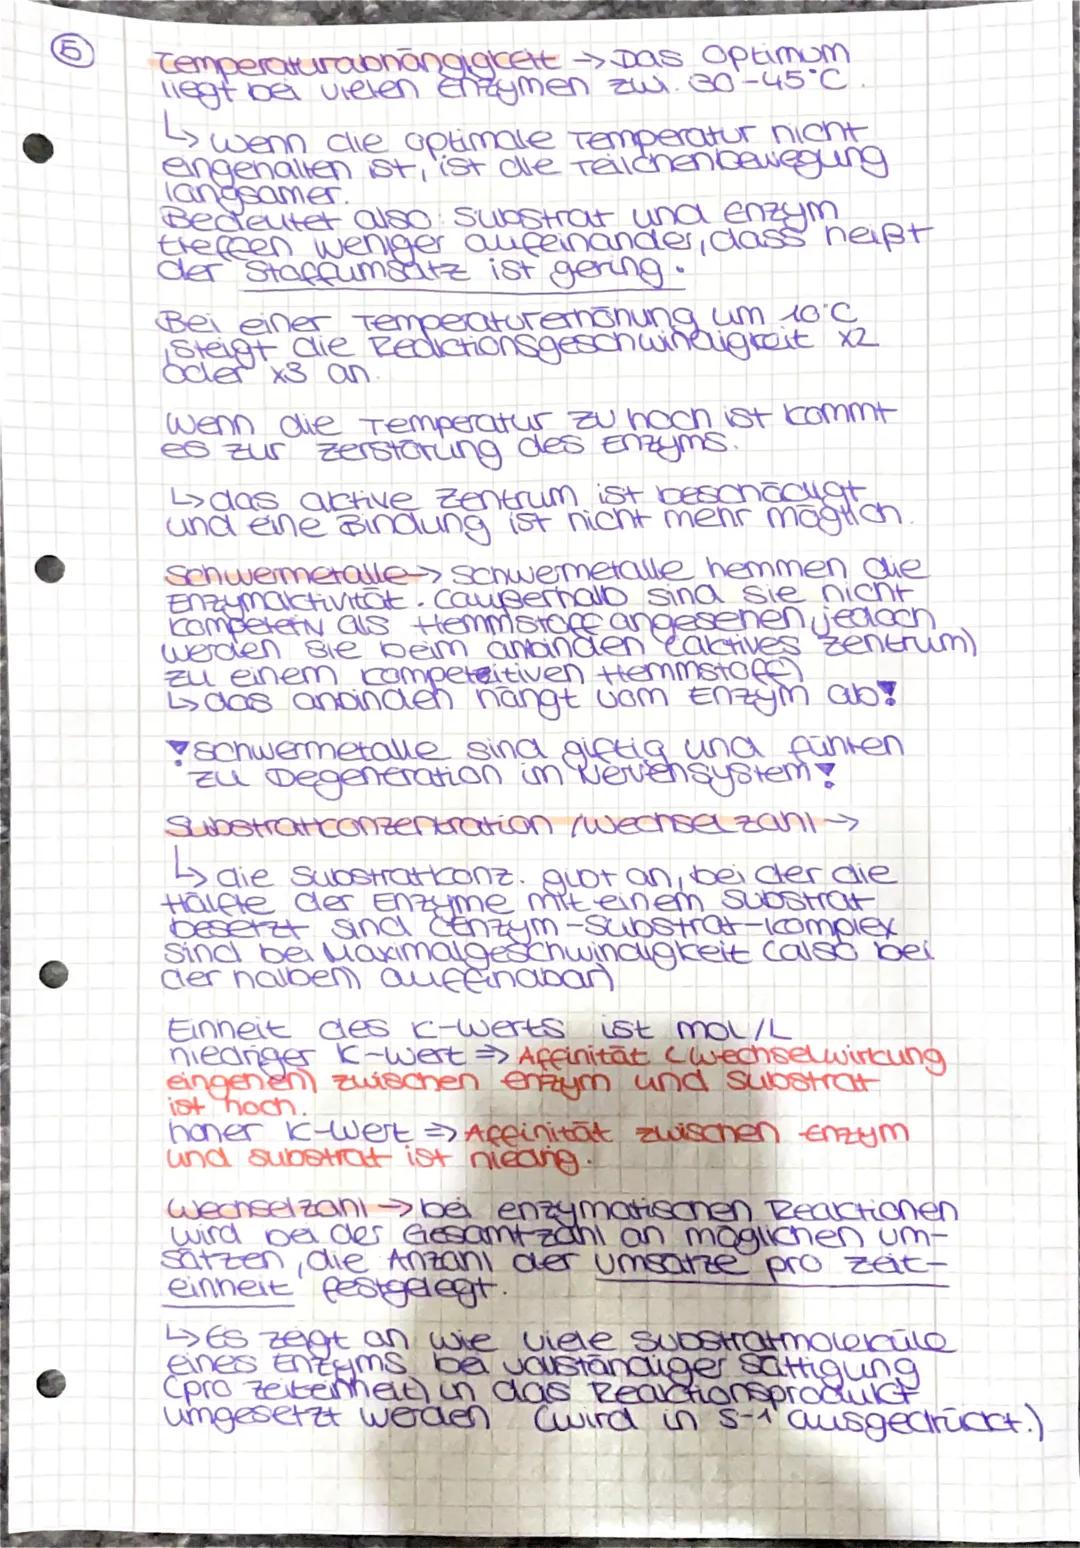 5
Temperaturabhängigkeit → Das Optimum
liegt bei vielen Enzymen zwi. 30-45°C.
↳ wenn die optimale Temperatur nicht
eingehalten ist, ist die Teilchenbewegung
langsamer.
Bedeutet also: Substrat und Enzym
treffen weniger aufeinander, dass heißt
der Stoffumsatz ist gering.
Bei einer Temperaturerhöhung um 10°C
steigt die Reaktionsgeschwindigkeit x2
oder x3 an.
Wenn die Temperatur zu hoch ist kommt
es zur Zerstörung des Enzyms.
↳ das aktive Zentrum ist beschädigt
und eine Bindung ist nicht mehr möglich.
Schwermetalle → Schwermetalle hemmen die
Enzymaktivität. (außerhalb sind sie nicht
kompetetiv als Hemmstoff angesehen, jedoch
werden sie beim anbinden (aktives Zentrum)
zu einem kompeteitiven Hemmstoff)
↳ das anbinden hängt vom Enzym ab!
! Schwermetalle sind giftig und führen
zu Degeneration im Nervensystem!
Substratkonzentration / Wechselzahl →
↳ die Substratkonz. gibt an, bei der die
Hälfte der Enzyme mit einem Substrat
besetzt sind (Enzym-Substrat-Komplex
sind bei Maximalgeschwindigkeit (also bei
der halben) auffindbar)
Einheit des K-Werts ist mol/L
niedriger K-Wert ⇒ Affinität (Wechselwirkung
eingehen) zwischen Enzym und Substrat
ist hoch.
hoher K-Wert ⇒ Affinität zwischen Enzym
und Substrat ist niedrig.
Wechselzahl → bei enzymatischen Reaktionen
wird bei der Gesamtzahl an möglichen Um-
sätzen, die Anzahl der Umsätze pro Zeit-
einheit festgelegt.
↳ Es zeigt an wie viele Substratmoleküle
eines Enzyms bei vollständiger Sättigung
(pro Zeiteinheit) in das Reaktionsprodukt
umgesetzt werden (wird in s-1 ausgedrückt.)